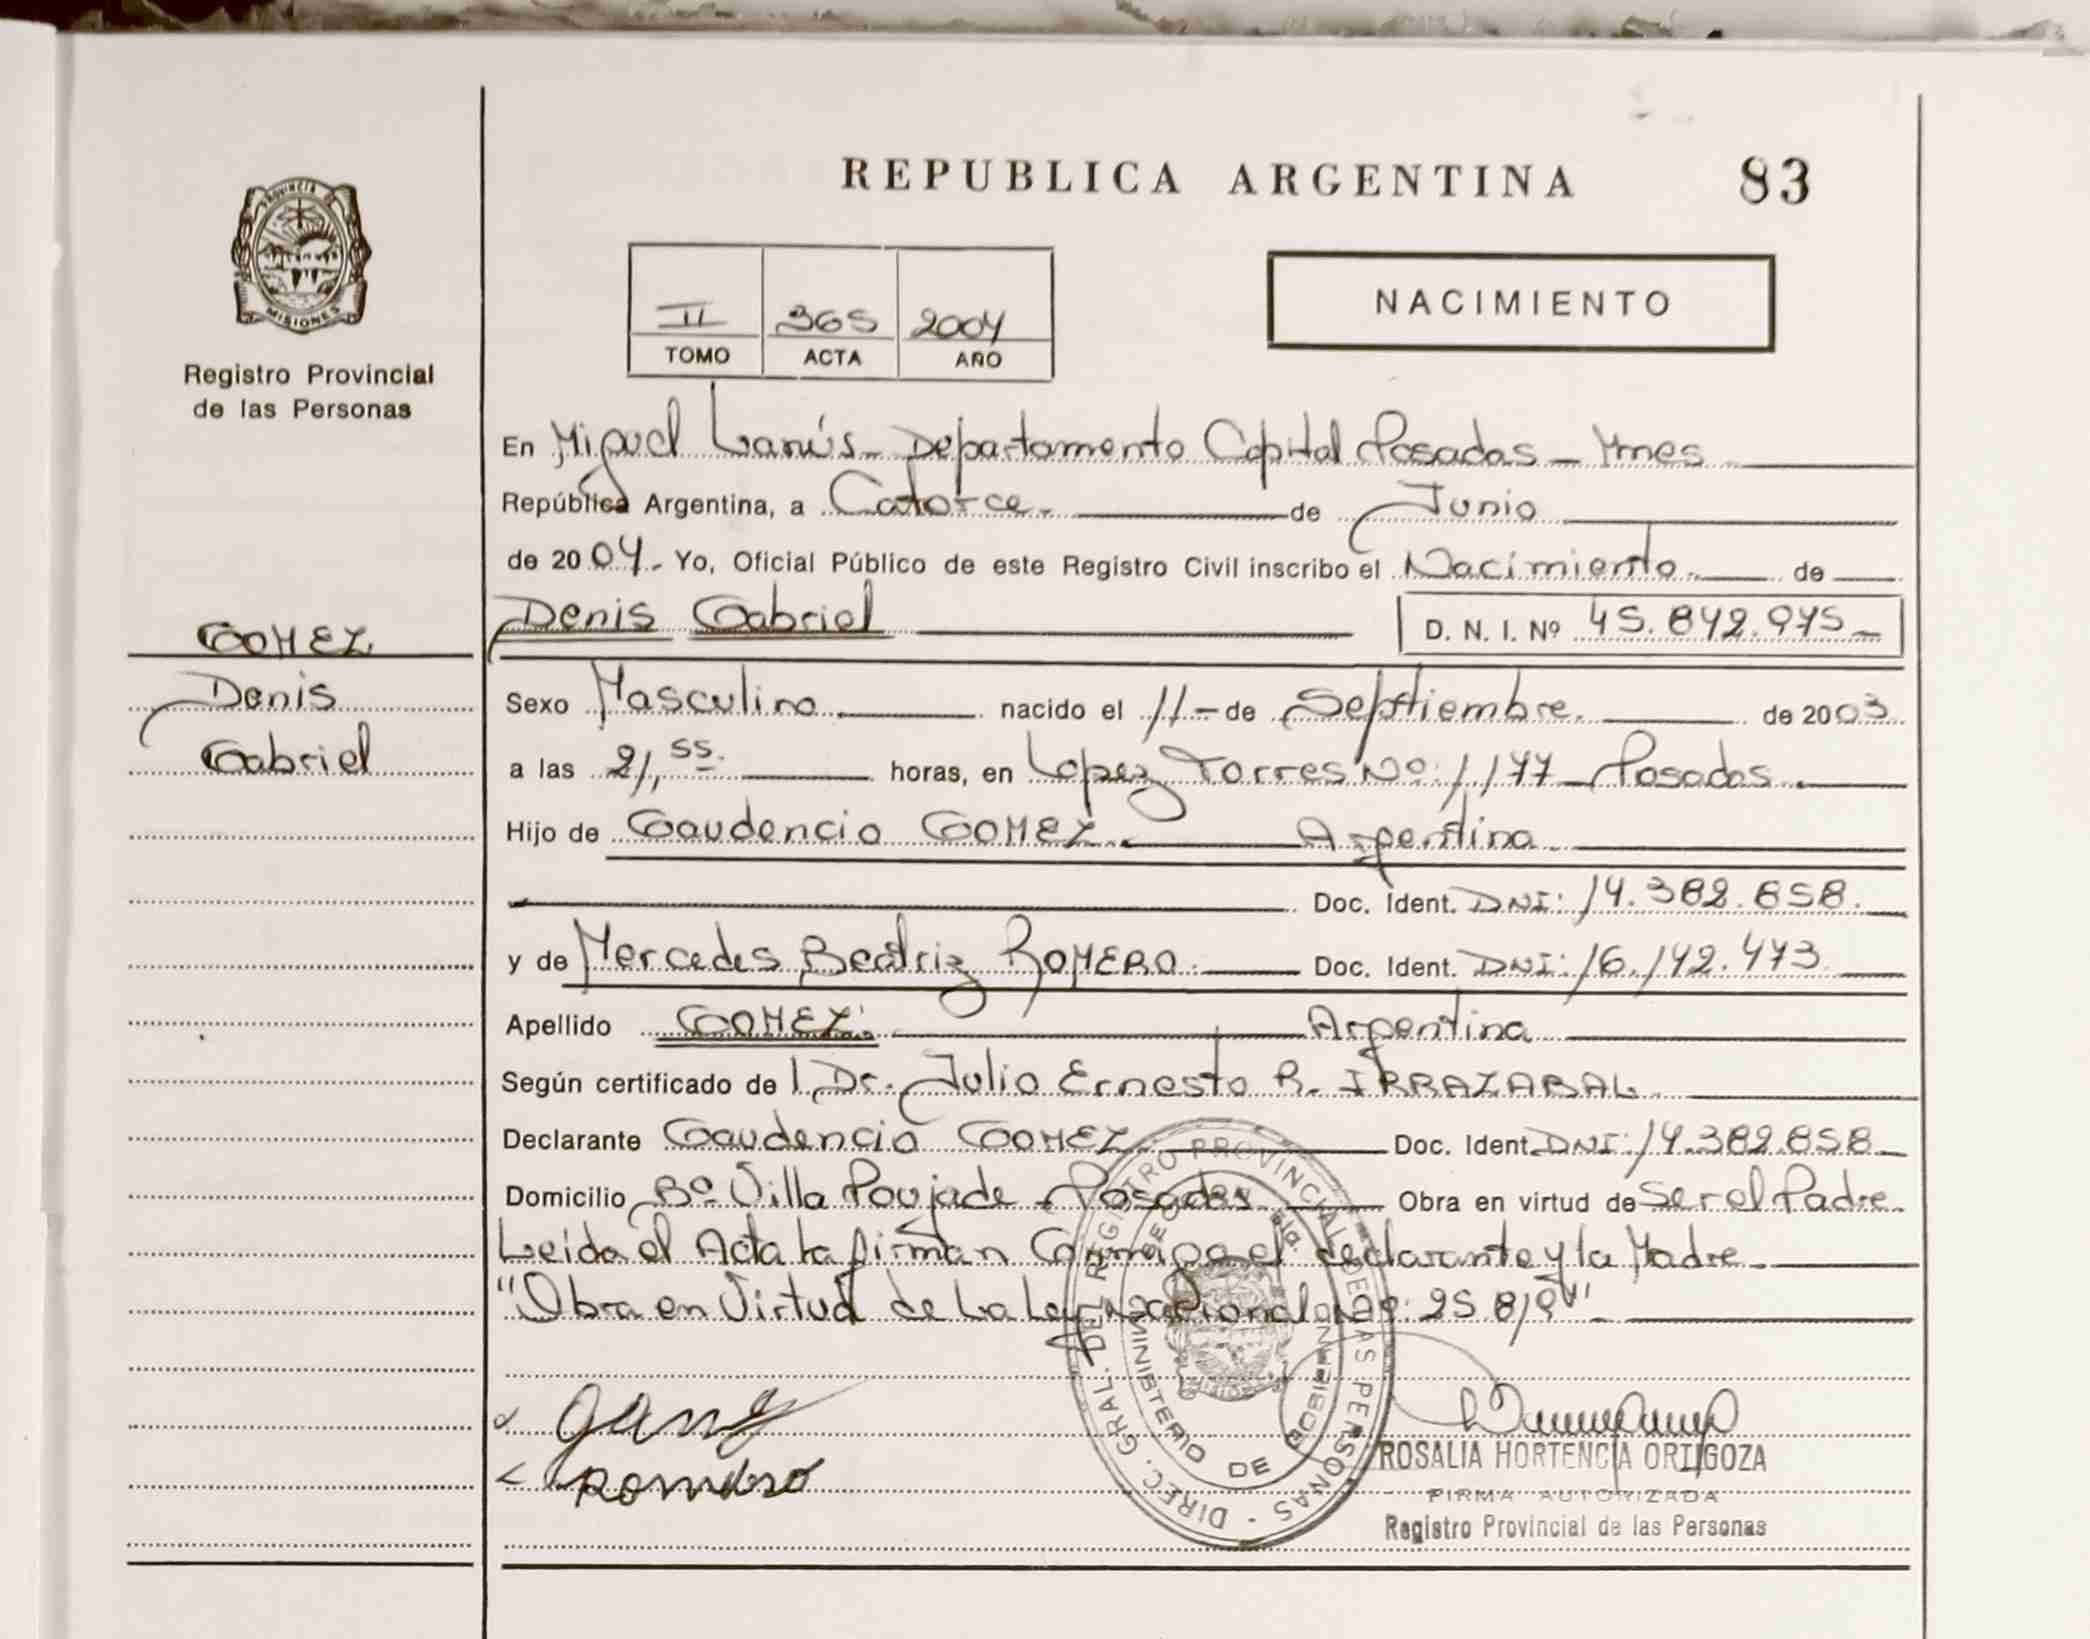 REPUBLICA ARGENTINA 83
PROVINCIA DE
MISIONES
Registro Provincial
de las Personas
II 365 2004
TOMO ACTA AÑO
NACIMIENTO
En Miguel Lanús - Departamento Capital Posadas - Mnes
República Argentina, a Catorce. de Junio
de 2004.- Yo, Oficial Público de este Registro Civil inscribo el Nacimiento. de
Denis Gabriel D. N. I. Nº 45.842.975-
GOMEZ
Denis
Gabriel
Sexo Masculino nacido el 11- de Septiembre. de 2003.
a las 21,55. horas, en Lopez Torres Nº: 1,177 - Posadas.
Hijo de Gaudencio GOMEZ. Argentina
Doc. Ident. DNI: 14.382.858.
y de Mercedes Beatriz ROMERO. Doc. Ident. DNI: 16.142.473
Apellido GOMEZ. Argentina
Según certificado de Dr. Julio Ernesto R. IRRAZABAL
Declarante Gaudencio GOMEZ Doc. Ident. DNI: 14.382.858
Domicilio Bº Villa Poujade - Posadas Obra en virtud de Ser el Padre
Leida el Acta La firman Conmigo el declarante y la Madre
"Obra en Virtud de La Ley Nacional Nº: 25.819"
Romero
DIREC. GRAL. DEL REGISTRO PROVINCIAL DE LAS PERSONAS
MINISTERIO DE GOBIERNO
ROSALIA HORTENCIA ORTIGOZA
FIRMA AUTORIZADA
Registro Provincial de las Personas